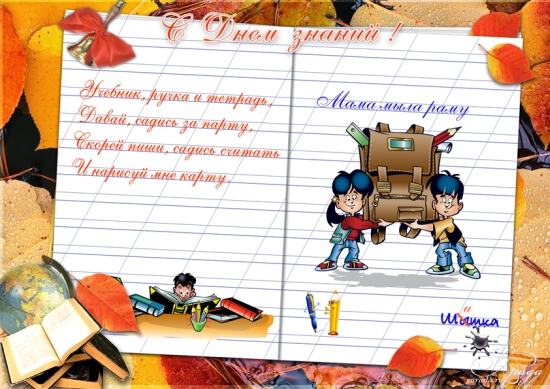 С Днем знаний!
Учебник, ручка и тетрадь,
Давай, садись за парту,
Скорей пиши, садись считать
И нарисуй мне карту.
Мама мыла раму
и
Шышка